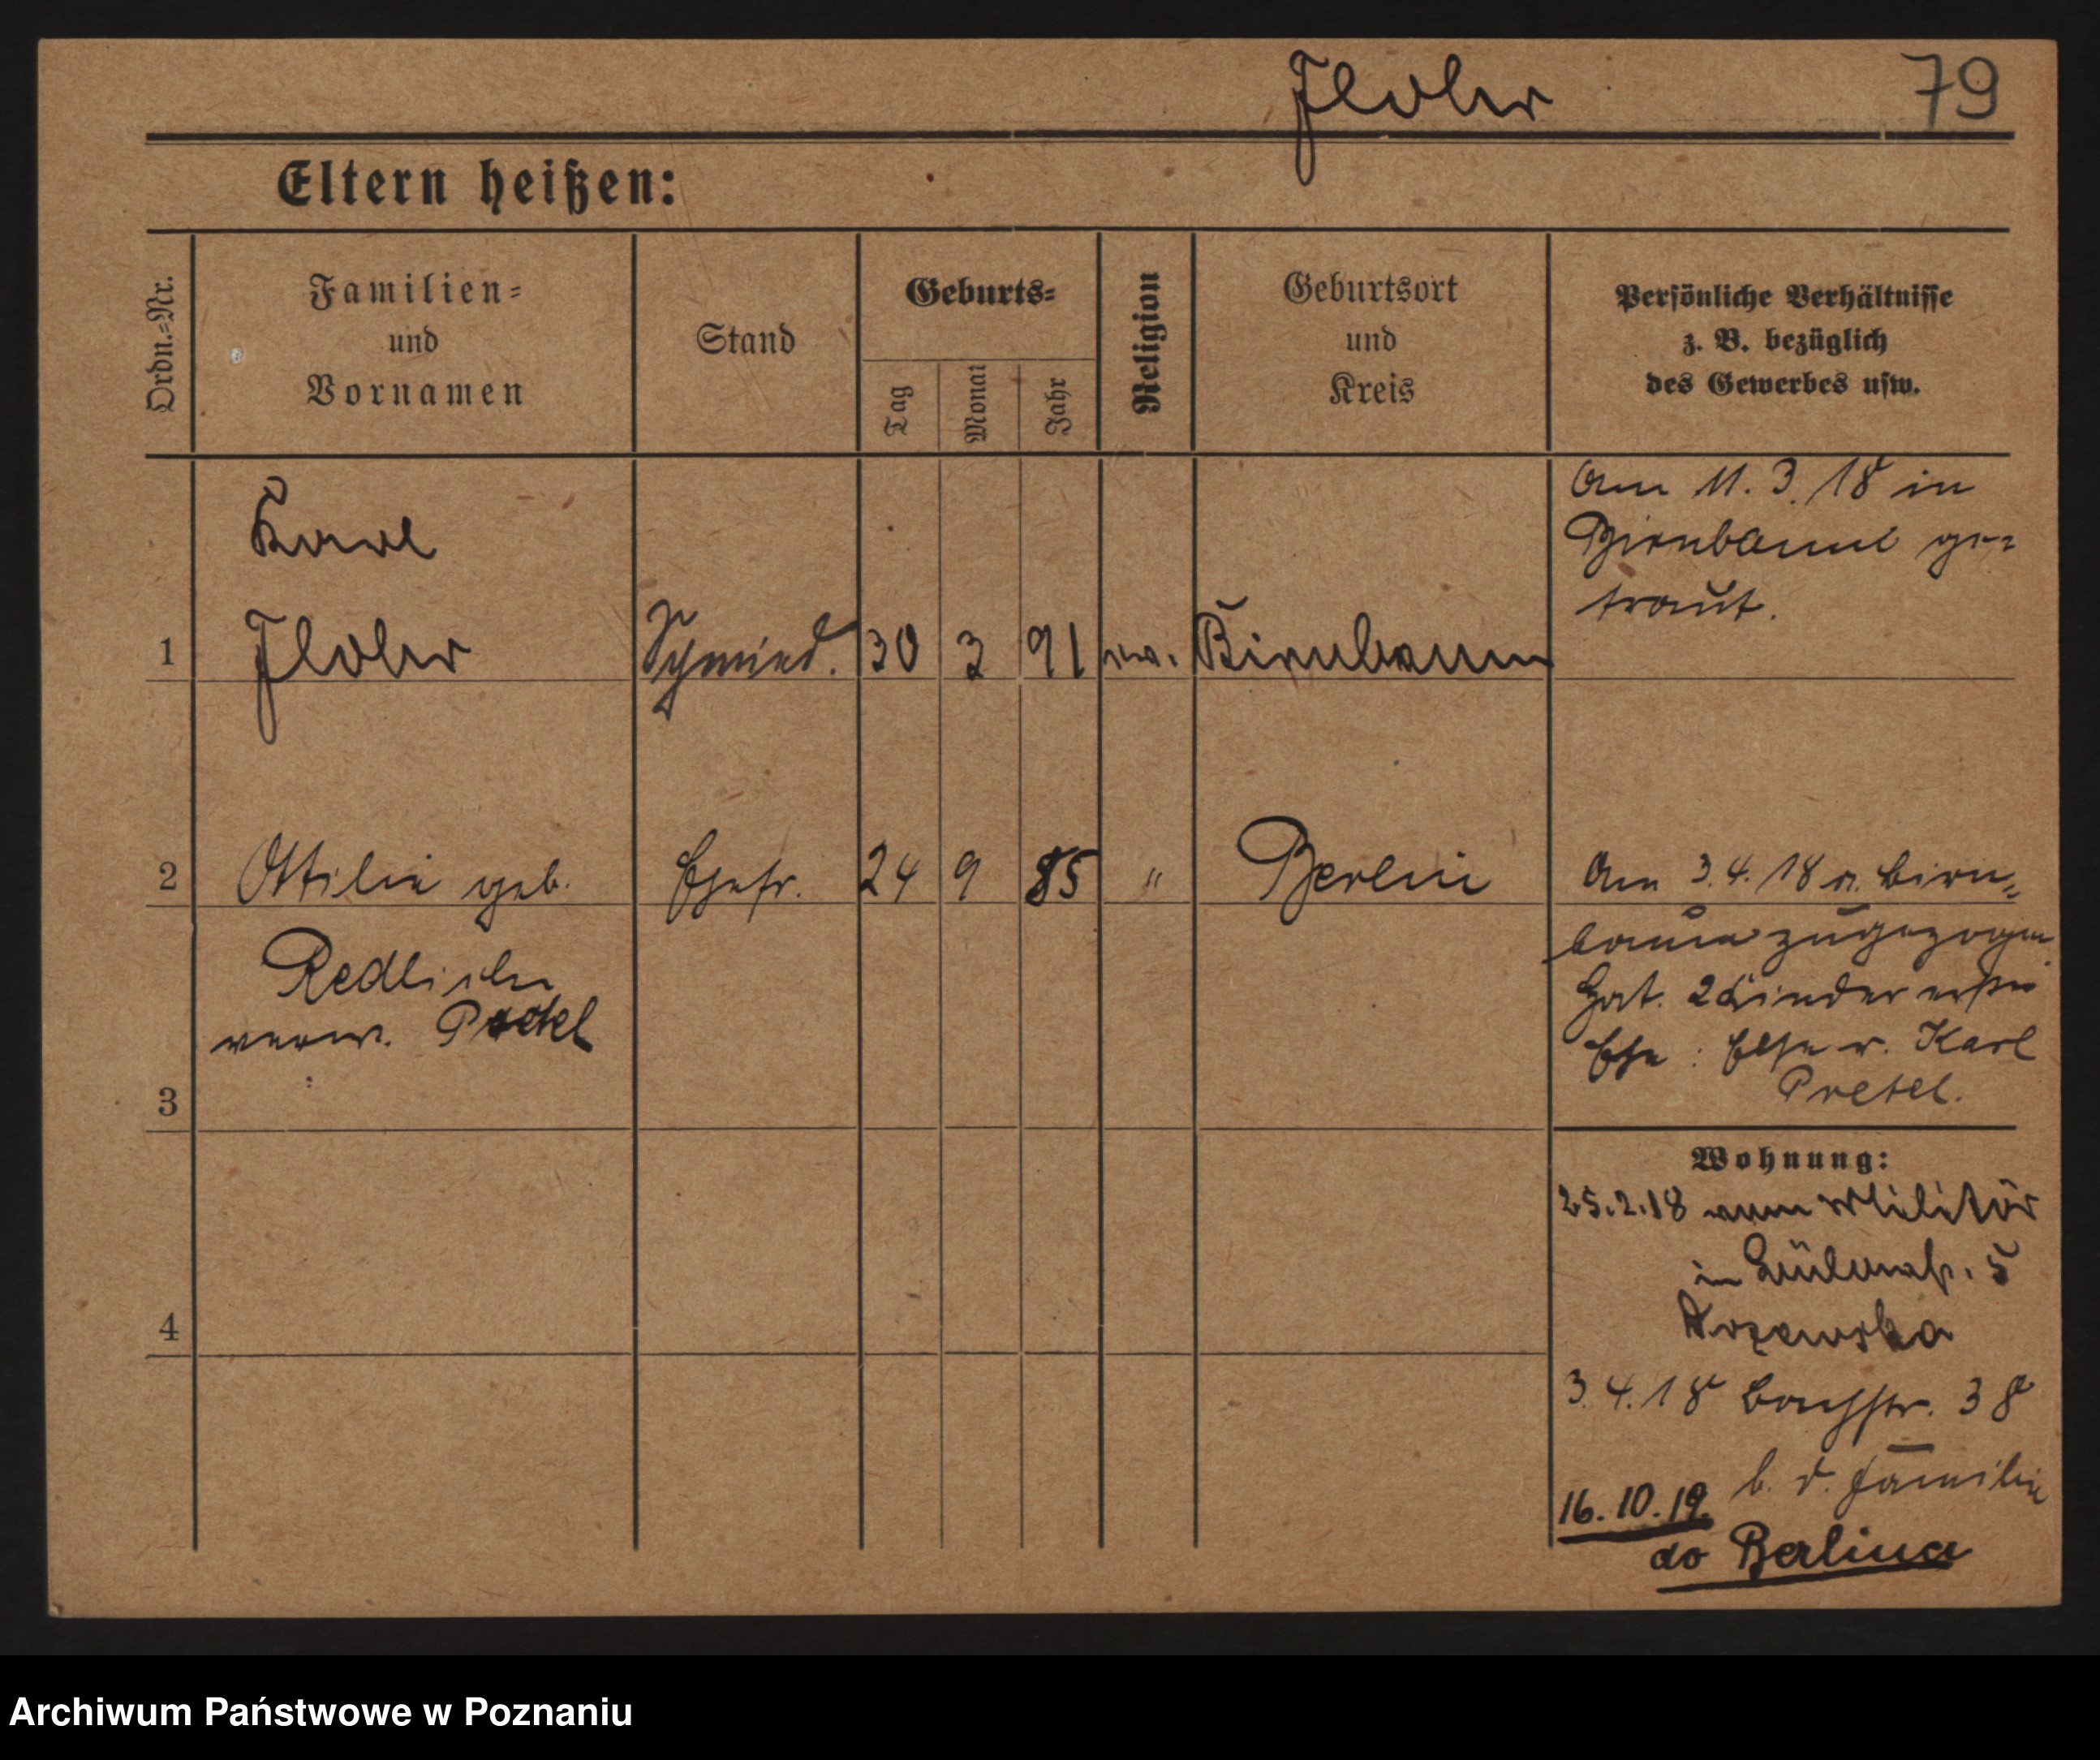 Flohr 79
Eltern heißen:
Ordn.=Nr.
Familien=
und
Vornamen
Stand
Geburts=
Tag
Monat
Jahr
Religion
Geburtsort
und
Kreis
Persönliche Verhältnisse
z. B. bezüglich
des Gewerbes usw.
Karl
1 Flohr Schmied. 30 3 91 ev. Birnbaum
Am 11. 3. 18 in
Birnbaum ge=
traut.
2 Ottilie geb. Ehefr. 24 9 85 " Berlin
Redlich
verw. Pretel
3
4
Am 3. 4. 18 v. Birn=
baum zugezogen.
Hat. 2 Kinder erster
Ehe: Else u. Karl
Pretel.
Wohnung:
25.2.18 vom Militär
in 5
3. 4. 18 Bachstr. 38
b. d. Familie
16. 10. 19.
do Berlina
Archiwum Państwowe w Poznaniu